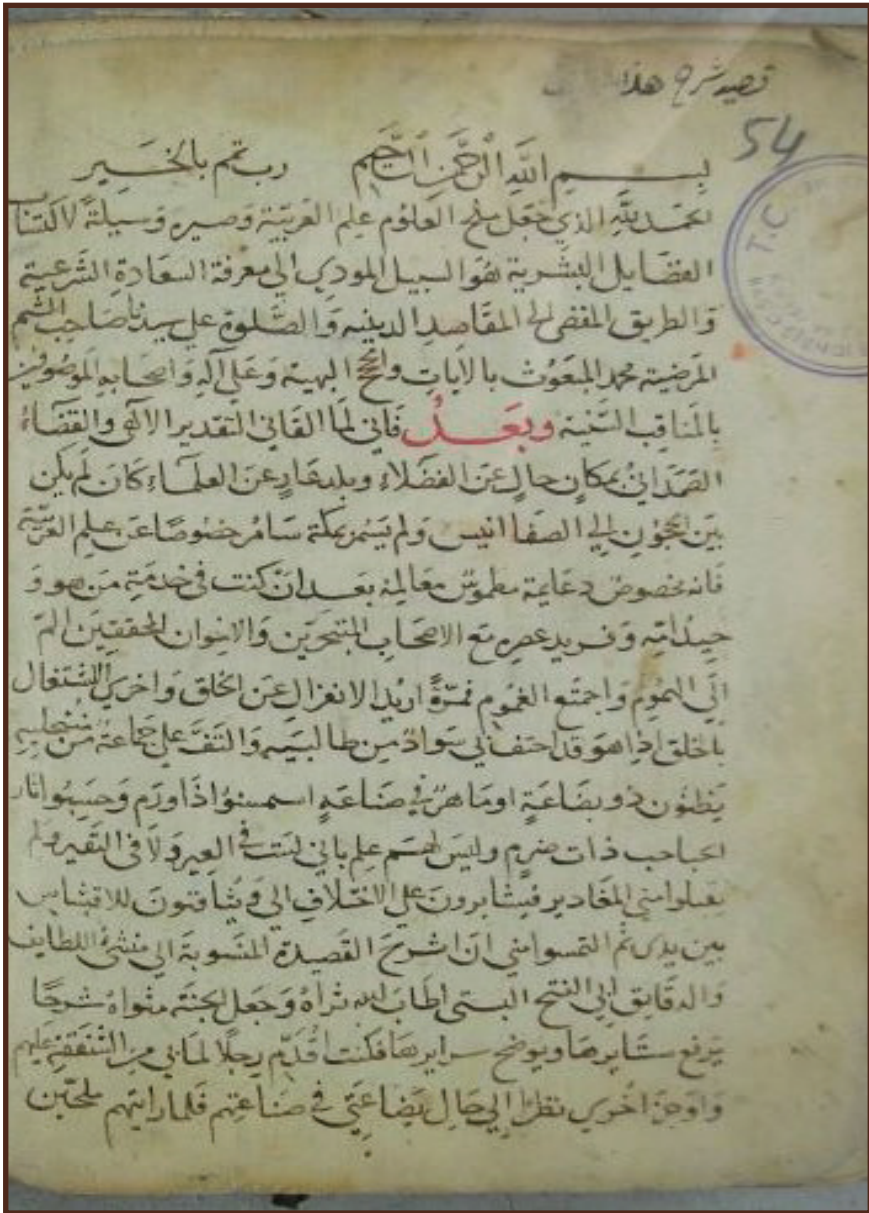 قصيد شرح هذا
54
T.C.
بسم الله الرحمن الرحيم رب تمم بالخير
الحمد لله الذي جعل ملح العلوم علم العربية وصيره وسيلة لاكتساب
الفضايل البشرية هو السبيل المودي الي معرفة السعادة الشرعية
والطريق المفضي الي المقاصد الدينيه والصلوة علي سيدنا صاحب الشيم
المرضية محمد المبعوث بالايات والحجج البهية وعلي آله واصحابه الموصوفين
بالمناقب السنية وبعد فاني لما القاني التقدير الالهي والقضاء
الصمداني بمكان خال عن الفضلاء وبلد عار عن العلماء كان لم يكن
بين الحجون الي الصفا انيس ولم يسمر بمكة سامر خصوصا عن علم العربية
فانه دعايمه مطموس معالمه بعد ان كنت في خدمة من هو و
حيد اته وفريد عصره مع الاصحاب المتبحرين والاخوان المحققين الم
الي الهموم واجتمع الغموم فمرة اريد الانعزال عن الخلق واخري الاشتغال
بالخلق اذا هو قد احتف بي سواد من طالبيه والتف علي جماعة من
يظنون ذو بضاعة او ماهر في صناعه استسمنوا ذا ورم وحسبوا نار
الحباحب ذات ضرم وليس لهم علم باني لست في العير ولا في النفير ولم
يقبلوا مني المعاذير فيثابرون علي الاختلاف الي ويثافنون للاقتباس
بين يدي ثم التمسوا مني ان اشرح القصيدة المنسوبة الي منشئ اللطايف
والدقايق ابي الفتح البستي اطاب الله ثراه وجعل الجنة مثواه شرحا
يرفع ستايرها ويوضح سرايرها فكنت اقدم رجلا لما بي من عليهم
واوخر اخري نظرا الي حال بضاعتي في صناعتهم فلما رايتهم ملحين